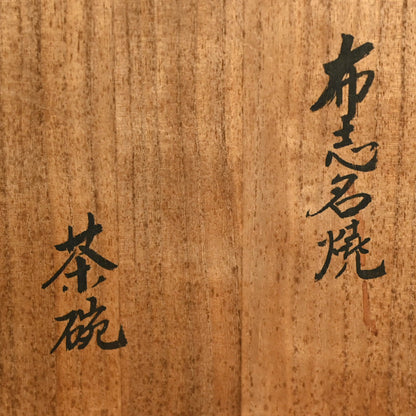 布志名燒
茶碗